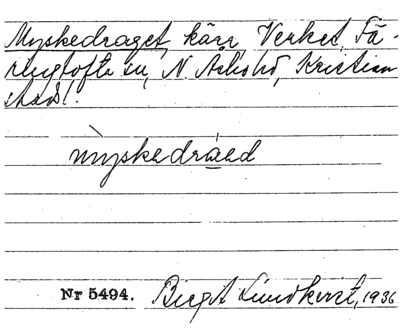 Myskedraget, kärr, Verket, Fä-
ringtofta sn, N Åsbohd, Kristian
stads l.
myskedräed
Nr 5494. Birgit Lundkvist, 1936